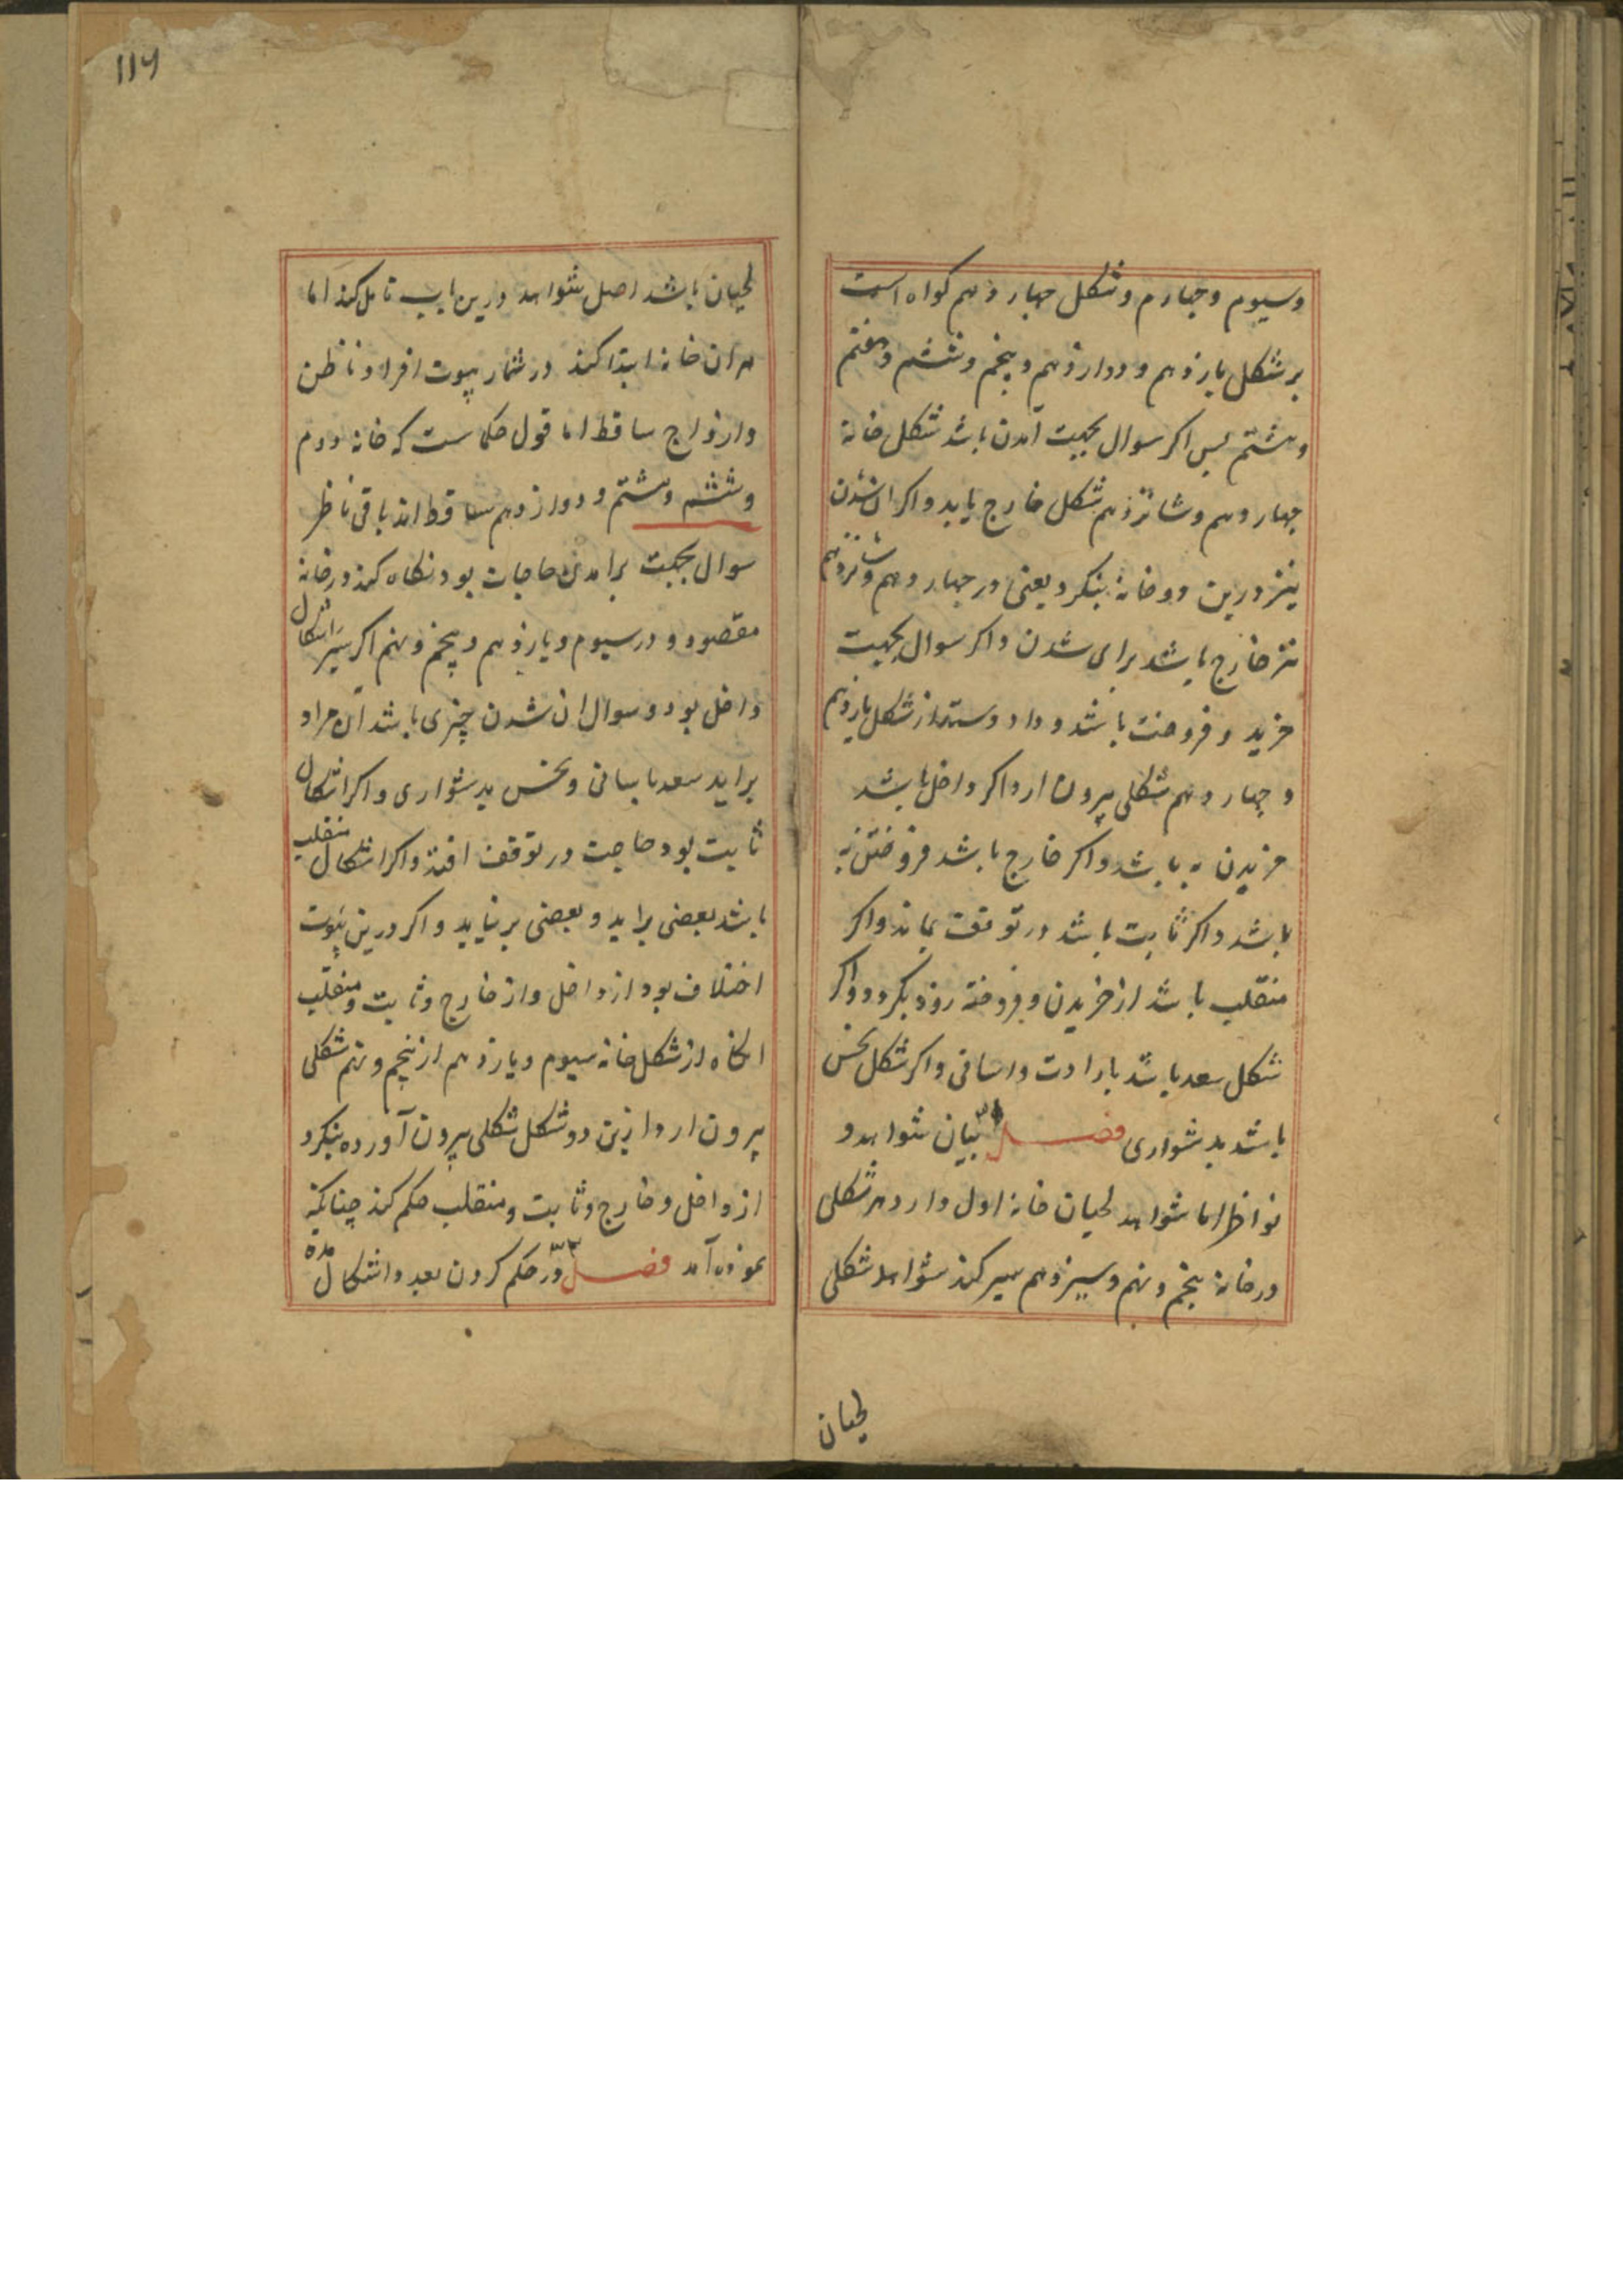 وسیوم وچهارم وشکل چهاردهم کواه است
برشکل یازدهم ودوازدهم وپنجم وششم وهفتم
وهشتم پس اکر سوال بجهت آمدن باشد شکل خانه
چهاردهم وشانزدهم شکل خارج یابد واکر از شدن
نیز درین دو خانه بنکرد یعنی در چهاردهم وشانزدهم
نیز خارج باشد برای شدن واکر سوال بجهت
خرید وفروخت باشد وداد وستد از شکل یازدهم
وچهاردهم شکلی بیرون ارد اکر داخل باشد
خریدن به باشد واکر خارج باشد فروختن به
باشد واکر ثابت باشد در توقف بماند واکر
منقلب باشد از خریدن وفروخته رود بکردد واکر
شکل سعد باشد بارادت واسانی واکر شکل نحس
باشد بدشواری فصل بیان شواهد و
نواظر اما شواهد لحیان خانه اول دارد هر شکلی
در خانه پنجم ونهم وسیزدهم سیر کند شواهد شکلی
لحیان
۱۱۶
لحیان باشد اصل شواهد درین باب تامل کند اما
هران خانه ابتدا کند در شمار بیوت افراد ناظرن
وازواج ساقط اما قول حکماست که خانه دوم
وششم وهشتم ودوازدهم ساقط اند باقی ناظر
سوال بجهت برامدن حاجات بود نکاه کند در خانه
مقصود ودر سیوم ویازدهم وپنجم ونهم اکر سیر اشکال
داخل بود وسوال از شدن چیزی باشد آن مراد
براید سعد باسانی ونحس بدشواری واکر اشکال
ثابت بود حاجت در توقف افتد واکر اشکال منقلب
باشد بعضی براید وبعضی برنیاید واکر درین بیوت
اختلاف بود از داخل واز خارج وثابت ومنقلب
انکاه از شکل خانه سیوم ویازدهم از پنجم ونهم شکلی
بیرون ارد ازین دو شکل شکلی بیرون آورده بنکرد
از داخل وخارج وثابت ومنقلب حکم کند چنانکه
نموده آمد فصل در حکم کردن بعدد اشکال مدة